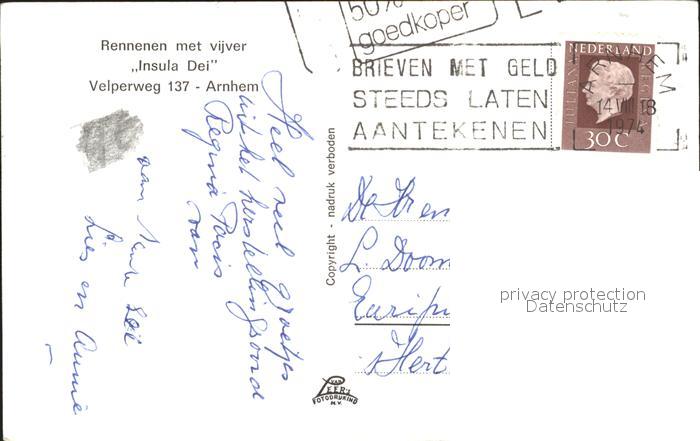 50%
goedkoper
Rennenen met vijver
„Insula Dei”
Velperweg 137 - Arnhem
BRIEVEN MET GELD
STEEDS LATEN
AANTEKENEN
NEDERLAND
JULIANA REGINA
30 C
ARNHEM
14 VIII 18
1974
Heel veel groetjes
uit het herstellingsoord
Regina Pacis
van
van tante
Lies en Annie
Copyright - nadruk verboden
De Heer
L. Doom
Euripi
s Hert
privacy protection
Datenschutz
VAN
LEER's
FOTODRUKIND
N.V.